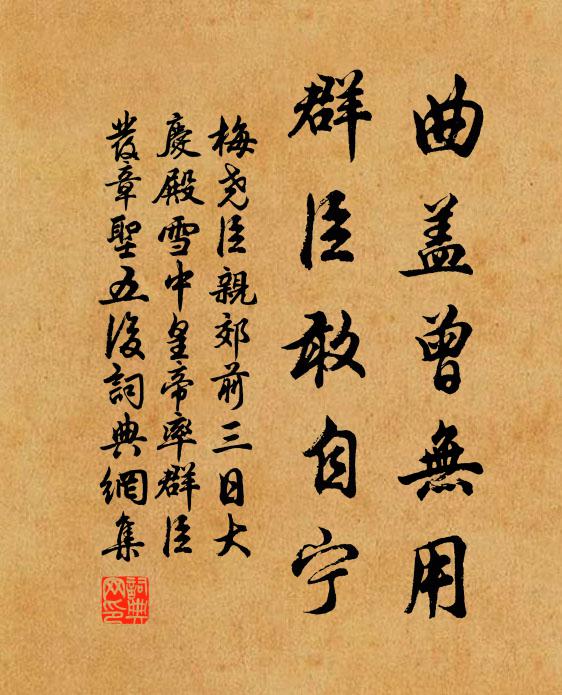 曲盖曾無用
群臣敢自宁
梅尧臣親郊前三日大
慶殿雪中皇帝率群臣
發章聖五後詞典網集
詞典
网印